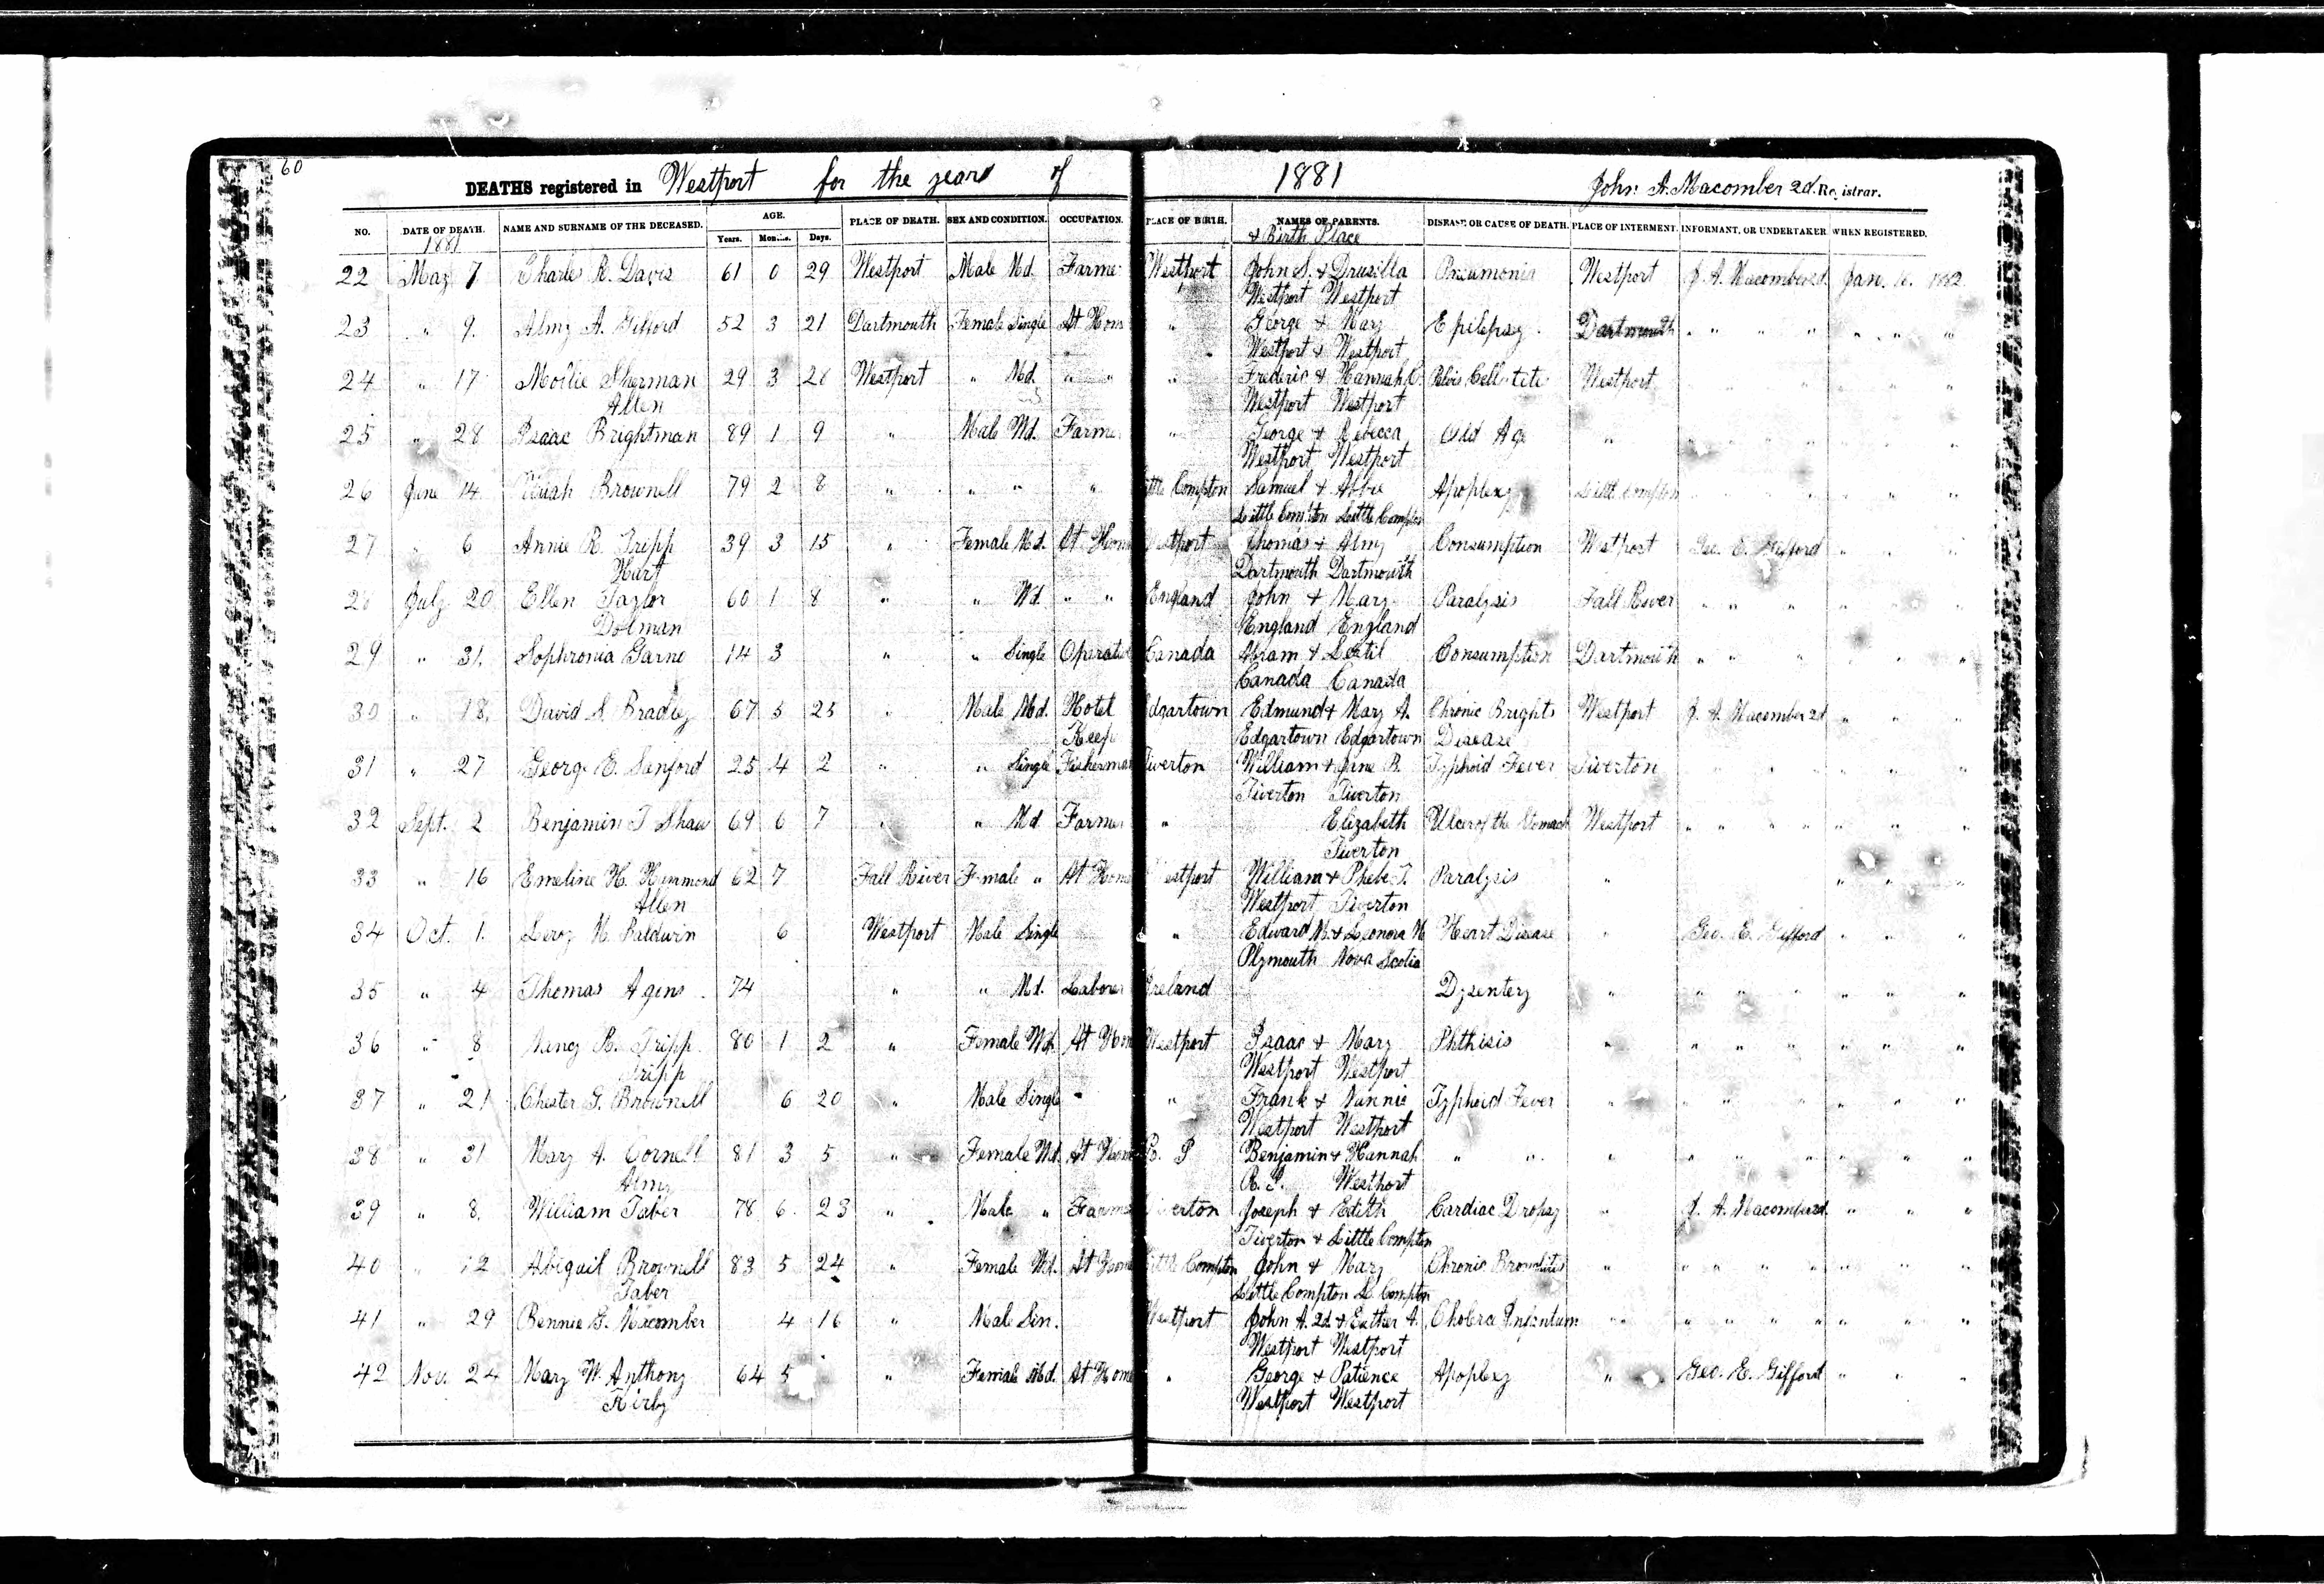 60
DEATHS registered in Westport for the years of 1881 John A. Macomber 2d. Registrar.
NO. DATE OF DEATH. NAME AND SURNAME OF THE DECEASED. AGE. PLACE OF DEATH. SEX AND CONDITION. OCCUPATION. PLACE OF BIRTH. NAMES OF PARENTS. DISEASE OR CAUSE OF DEATH. PLACE OF INTERMENT. INFORMANT, OR UNDERTAKER WHEN REGISTERED.
1881 Years. Months. Days. & Birth Place
22 May 7 Charles R. Davis 61 0 29 Westport Male Md. Farmer Westport John S. & Drusilla Pneumonia Westport J. A. Macomber 2d. Jan. 16. 1882
Westport Westport
23 " 9. Almy A. Gifford 52 3 21 Dartmouth Female Single At Home " George & Mary Epilepsy Dartmouth " " " " " " " "
Westport & Westport
24 " 17 Mollie Sherman 29 3 28 Westport " Md. " " " Frederic & Hannah C. Pelvis Westport " " " " "
Allen Westport Westport
25 " 28 Isaac Brightman 89 1 9 " Male Md. Farmer " George & Rebecca Old Age " " " " " "
Westport Westport
26 June 14 Uriah Brownell 79 2 8 " " " " Little Compton Samuel & Abbie Apoplexy Little Compton " " " " "
Little Compton Little Compton
27 " 6 Annie R. Tripp 39 3 15 " Female Md. At Home Westport Thomas & Almy Consumption Westport Geo. E. Gifford " " "
Hart Dartmouth Dartmouth
28 July 20 Ellen Taylor 60 1 8 " " Wd. " " England John & Mary Paralysis Fall River " " " " " "
Dolman England England
29 " 31. Sophronia Garne 14 3 " " Single Operative Canada Abram & Consumption Dartmouth " " " " " "
Canada Canada
30 " 18. David S. Bradley 67 5 25 " Male Md. Hotel Edgartown Edmund & Mary A. Chronic Brights Westport J. A. Macomber 2d " " "
Keep Edgartown Edgartown Disease
31 " 27 George E. Sanford 25 4 2 " " Single Fisherman Tiverton William & Jane B. Typhoid Fever Tiverton " " " " " "
Tiverton Tiverton
32 Sept. 2 Benjamin T Shaw 69 6 7 " " Md Farmer " Elizabeth Ulcer of the Stomach Westport " " " " " " "
Tiverton
33 " 16 Emeline H. Hammond 62 7 Fall River Female " At Home Westport William & Phebe T. Paralysis " " " "
Allen Westport Tiverton
34 Oct. 1. Leroy N. Baldwin 6 Westport Male Single " Edward M. & Leonora M Heart Disease " Geo. E. Gifford " " "
Plymouth Nova Scotia
35 " 4 Thomas Agins 74 " " Md. Laborer Ireland Dysentery " " " " " " "
36 " 8 Nancy R. Tripp 80 1 2 " Female Wd. At Home Westport Isaac & Mary Phthisis " " " " " " "
Tripp Westport Westport
37 " 21 Chester G. Brownell 6 20 " Male Single " " Frank & Nannie Typhoid Fever " " " " " " "
Westport Westport
38 " 31 Mary A. Cornell 81 3 5 " Female Md. At Home R. I Benjamin & Hannah " " " " " " " " "
Almy R. I. Westport
39 " 8. William Taber 78 6 23 " Male " Farmer Tiverton Joseph & Edith Cardiac Dropsy " J. A. Macomber 2d. " " "
Tiverton & Little Compton
40 " 12 Abigail Brownell 83 5 24 " Female Wd. At Home Little Compton John & Mary Chronic Bronchitis " " " " " " " "
Taber Little Compton L. Compton
41 " 29 Bennie G. Macomber 4 16 " Male Sin. Westport John A. 2d. & Esther A. Cholera Infantum " " " " " " " "
Westport Westport
42 Nov. 24 Mary W. Anthony 64 5 " Female Md. At Home " George & Patience Apoplexy " Geo. E. Gifford " " "
Kirby Westport Westport